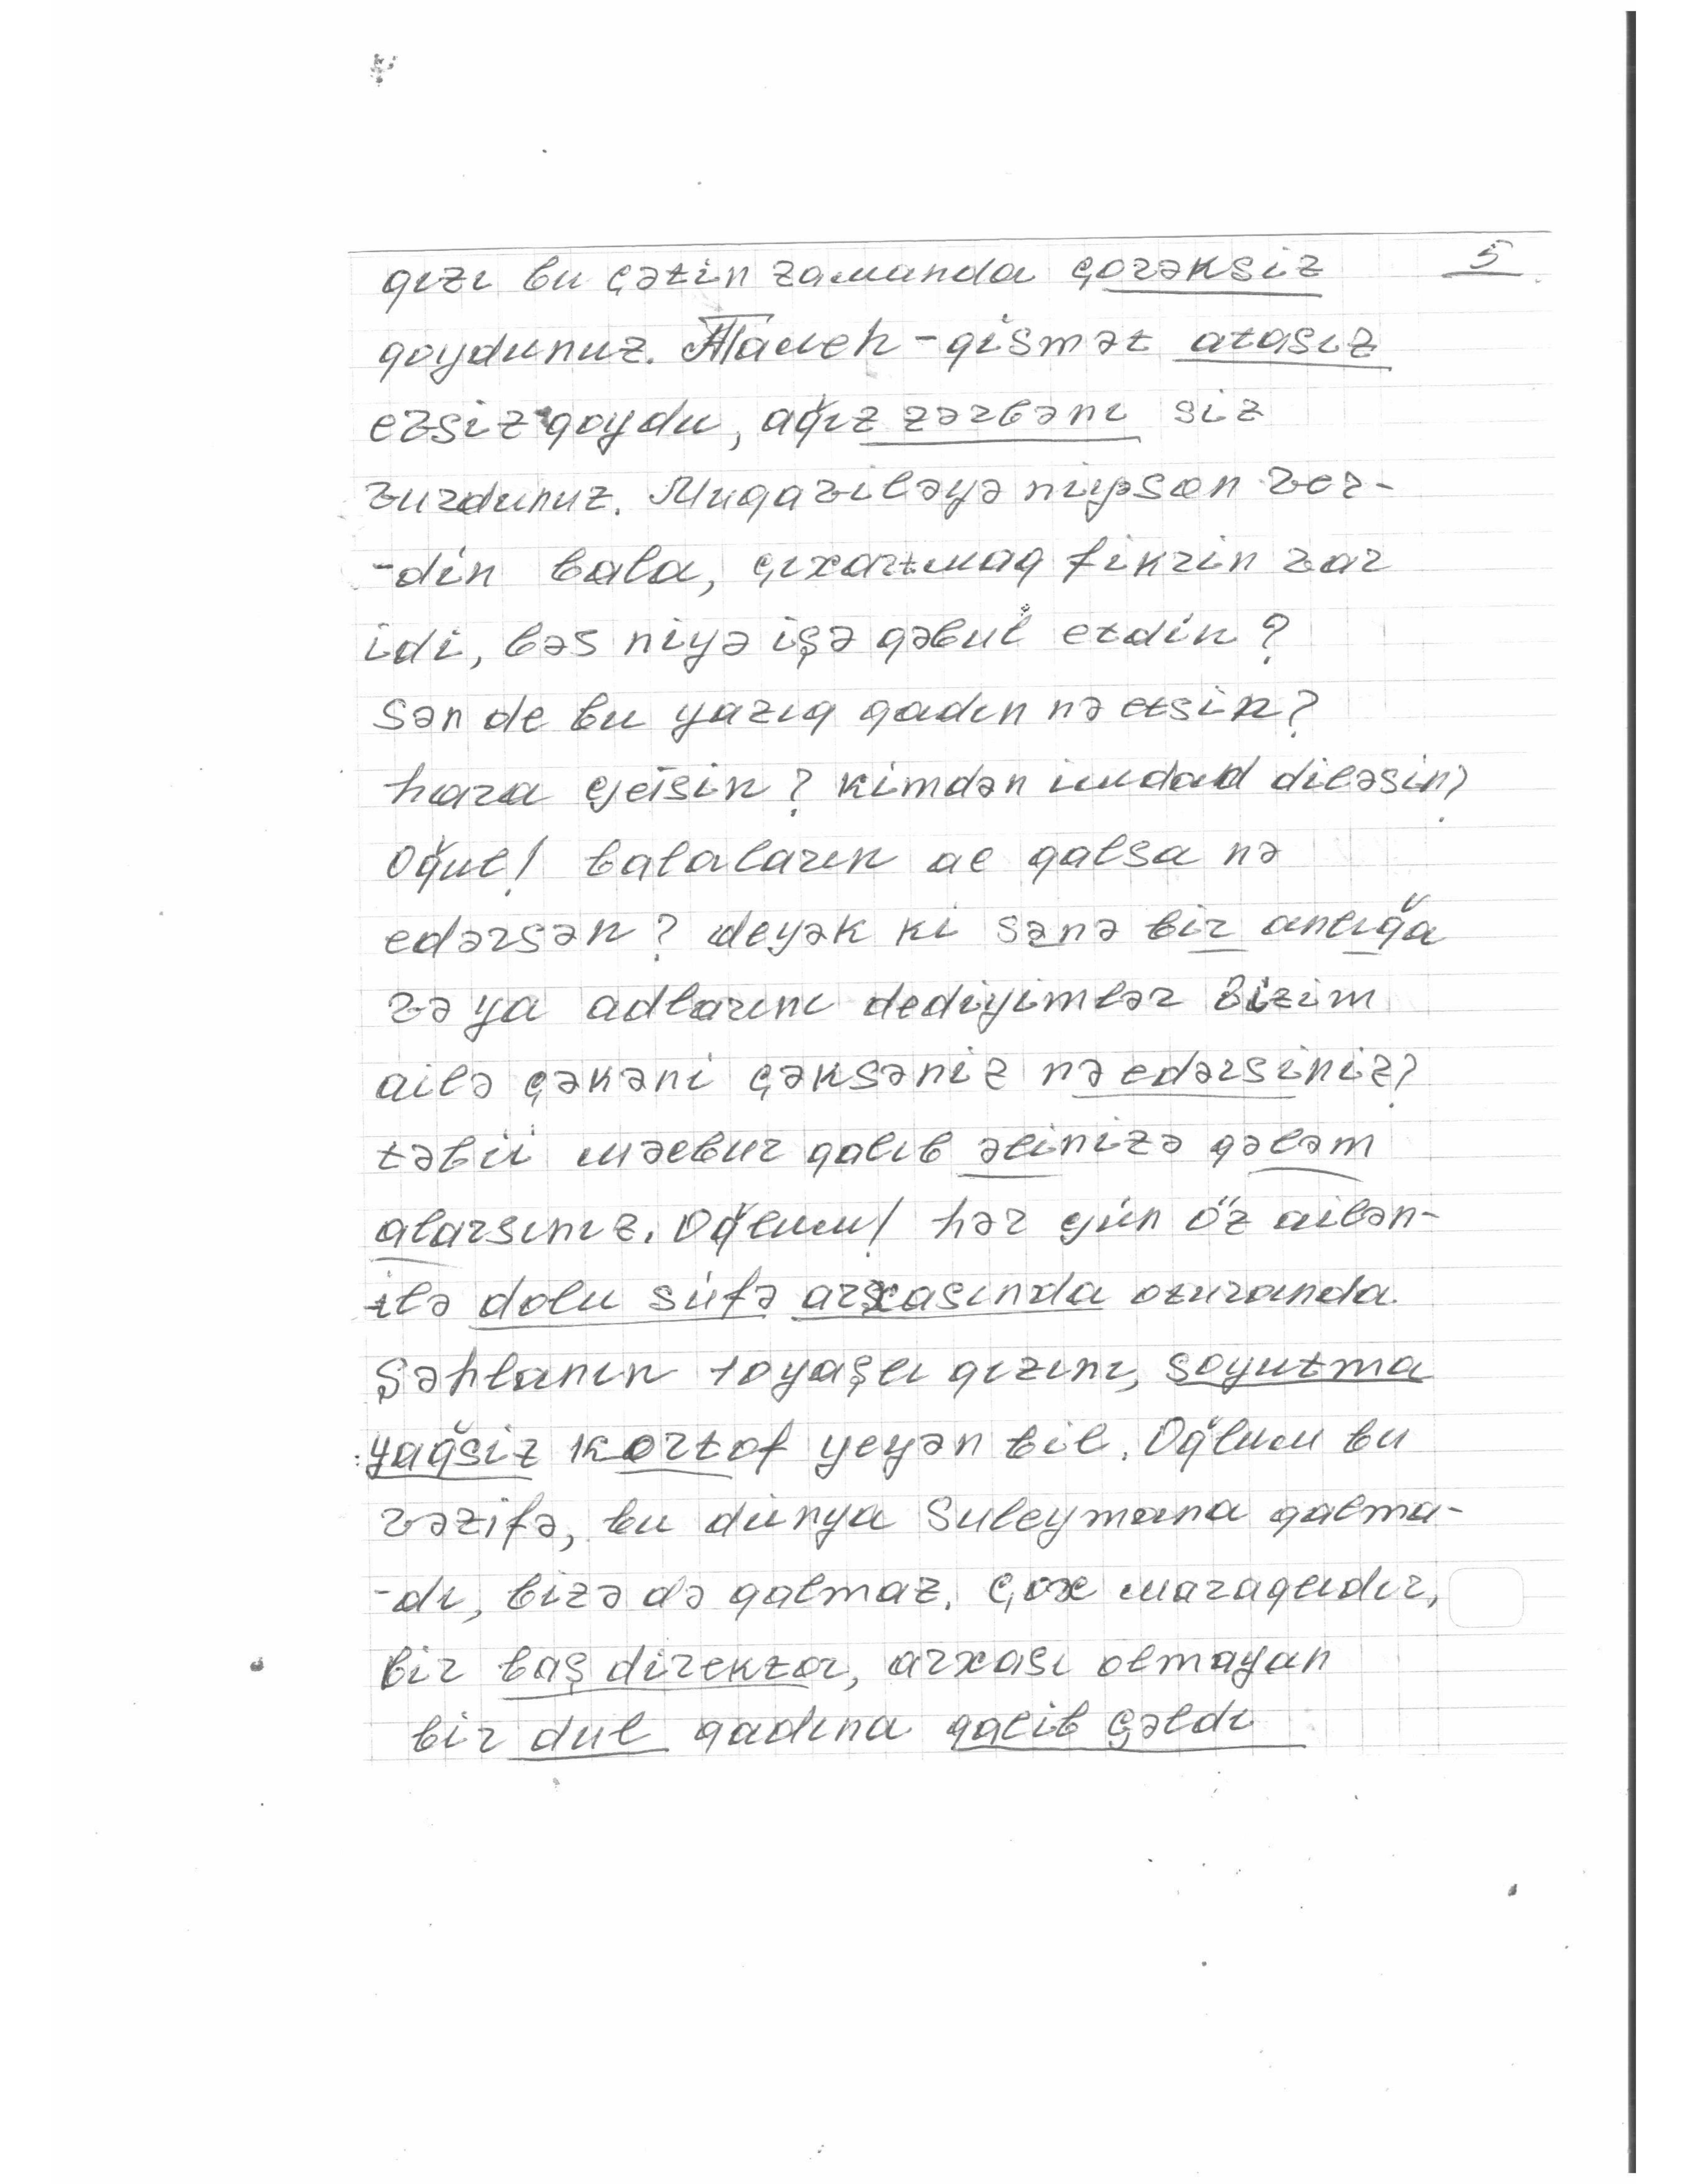 5
qızı bu çətin zamanda çorəksiz
qoydunuz. Taleh-qismət atasız
ersiz qoydu, ağız zərbəni siz
vurdunuz. Muqaviləyə niyə son ver-
-din bala, çıxartmaq fikrin var
idi, bəs niyə işə qəbul etdin?
Sən de bu yazıq qadın nə etsin?
hara getsin? kimdən imdad diləsin?
Oğul! balaların ac qalsa nə
edərsən? deyək ki sənə bir anlığa
və ya adlarını dediyimlər bizim
ailə çəkəni çəksəniz nə edərsiniz?
təbii məcbur qalıb əlinizə qələm
alarsınız. Oğlum! hər gün öz ailən-
ilə dolu süfə arxasında oturanda
Şəhlanın 10 yaşlı qızını, soyutma
yağsiz kortof yeyən bil. Oğlum bu
vəzifə, bu dünya Suleymana qalma-
-dı, bizə də qalmaz. Çox maraqlıdır,
bir baş direktor, arxası olmayan
bir dul qadına qalib gəldi